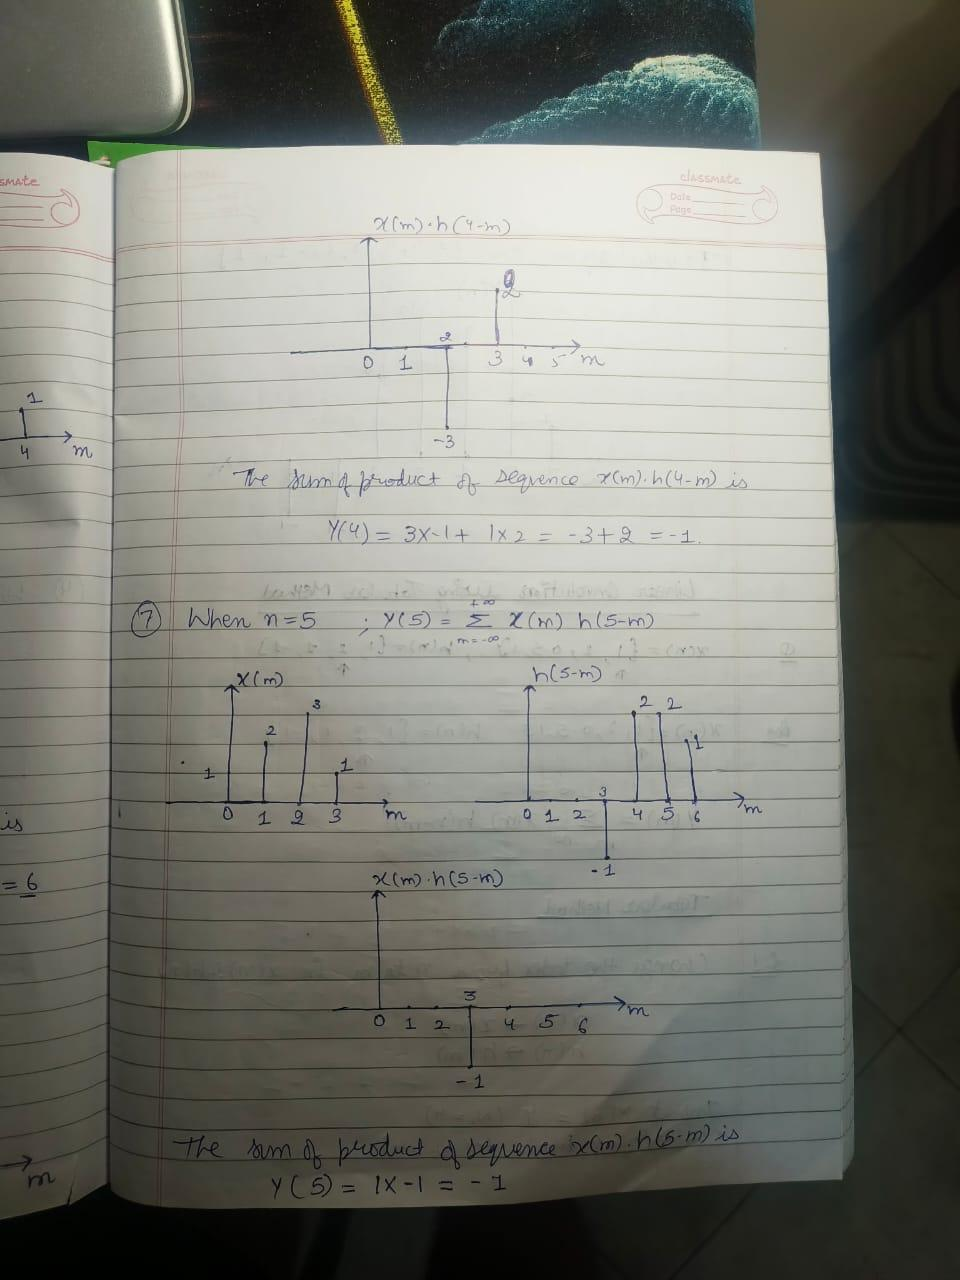 smate
classmate
Date
Page
x(m)·h(4-m)
2
2
0 1 3 4 5 m
-3
1
4 m
The sum of product of sequence x(m).h(4-m) is
Y(4) = 3x-1 + 1x2 = -3+2 = -1.
7 When n=5 ; Y(5) = +∞ Σ m=-∞ x(m) h(5-m)
x(m)
1 2 3 1
0 1 2 3 m
h(5-m)
2 2 1
3
0 1 2 4 5 6 m
-1
is
= 6
x(m).h(5-m)
3
0 1 2 4 5 6 m
-1
The sum of product of sequence x(m).h(5-m) is
m
Y(5) = 1x-1 = -1